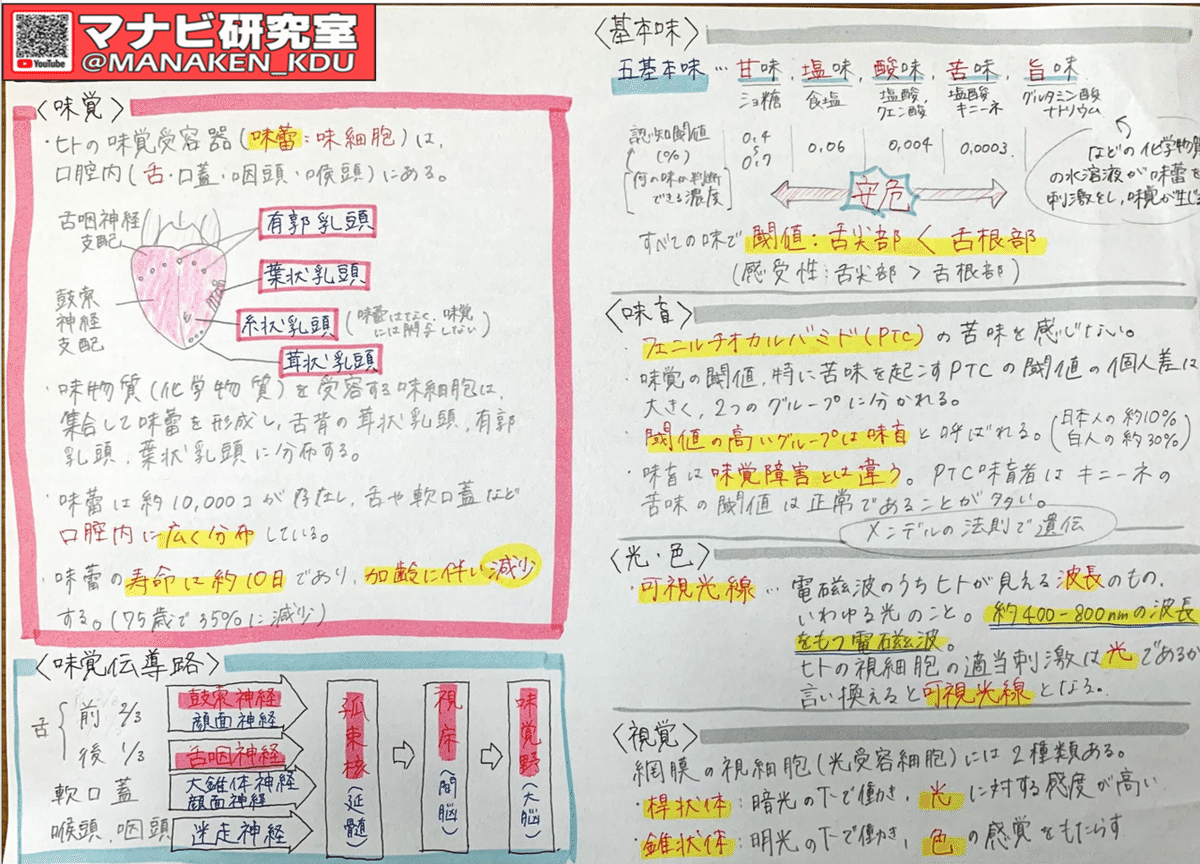 YouTube
マナビ研究室
@MANAKEN_KDU
〈味覚〉
・ヒトの味覚受容器(味蕾:味細胞)は、
口腔内(舌・口蓋・咽頭・喉頭)にある。
舌咽神経
支配
鼓索
神経
支配
有郭乳頭
葉状乳頭
糸状乳頭
(味蕾はなく、味覚
には関与しない)
茸状乳頭
・味物質(化学物質)を受容する味細胞は、
集合して味蕾を形成し、舌背の茸状乳頭、有郭
乳頭、葉状乳頭に分布する。
・味蕾は約10,000コが存在し、舌や軟口蓋など
口腔内に広く分布している。
・味蕾の寿命は約10日であり、加齢に伴い減少
する。(75歳で35%に減少)
〈味覚伝導路〉
舌
前 2/3
後 1/3
軟口蓋
喉頭、咽頭
鼓索神経
顔面神経
舌咽神経
大錐体神経
顔面神経
迷走神経
孤束核(延髄)
視床(間脳)
味覚野(大脳)
〈基本味〉
五基本味…甘味、塩味、酸味、苦味、旨味
ショ糖
食塩
塩酸,
クエン酸
塩酸
キニーネ
グルタミン酸
ナトリウム
認知閾値
(%)
[何の味か判断
できる濃度]
0.4
〜
0.7
0.06
0.004
0.0003
安危
などの化学物質
の水溶液が味蕾を
刺激をし、味覚が生じ
すべての味で閾値:舌尖部<舌根部
(感受性:舌尖部>舌根部)
〈味盲〉
・フェニルチオカルバミド(PTC)の苦味を感じない。
・味覚の閾値、特に苦味を起こすPTCの閾値の個人差は
大きく、2つのグループに分かれる。
・閾値の高いグループは味盲と呼ばれる。
(日本人の約10%
白人の約30%)
・味盲は味覚障害とは違う。PTC味盲者はキニーネの
苦味の閾値は正常であることが多い。
メンデルの法則で遺伝
〈光・色〉
・可視光線…電磁波のうちヒトが見える波長のもの、
いわゆる光のこと。約400-800nmの波長
をもつ電磁波。
ヒトの視細胞の適当刺激は光であるが
言い換えると可視光線となる。
〈視覚〉
網膜の視細胞(光受容細胞)には2種類ある。
・桿状体:暗光の下で働き、光に対する感度が高い
・錐状体:明光の下で働き、色の感覚をもたらす